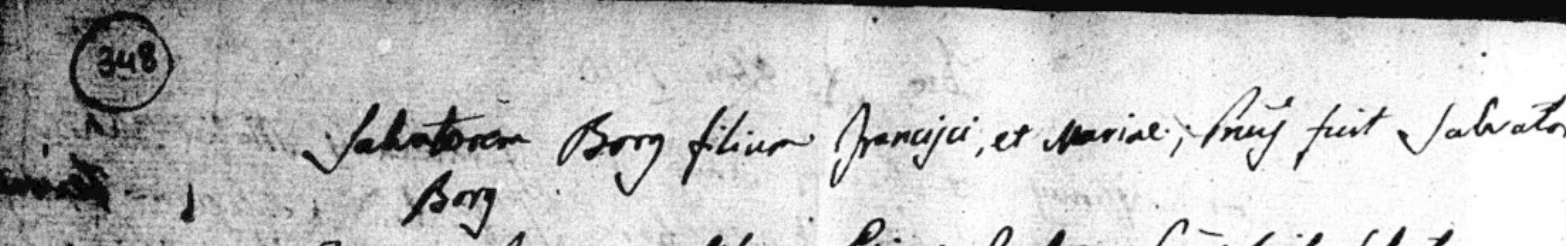 348
Salvatorem Borg filium Francisci, et Mariae; fuit Salvato
Borg